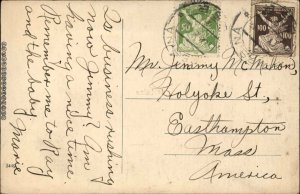 Is business rushing
now Jimmy? Am
having a nice time.
Remember me to Ray
and the baby
Marie
Mr. Jimmy McMahon,
Holyoke St.,
Easthampton
Mass
America
100